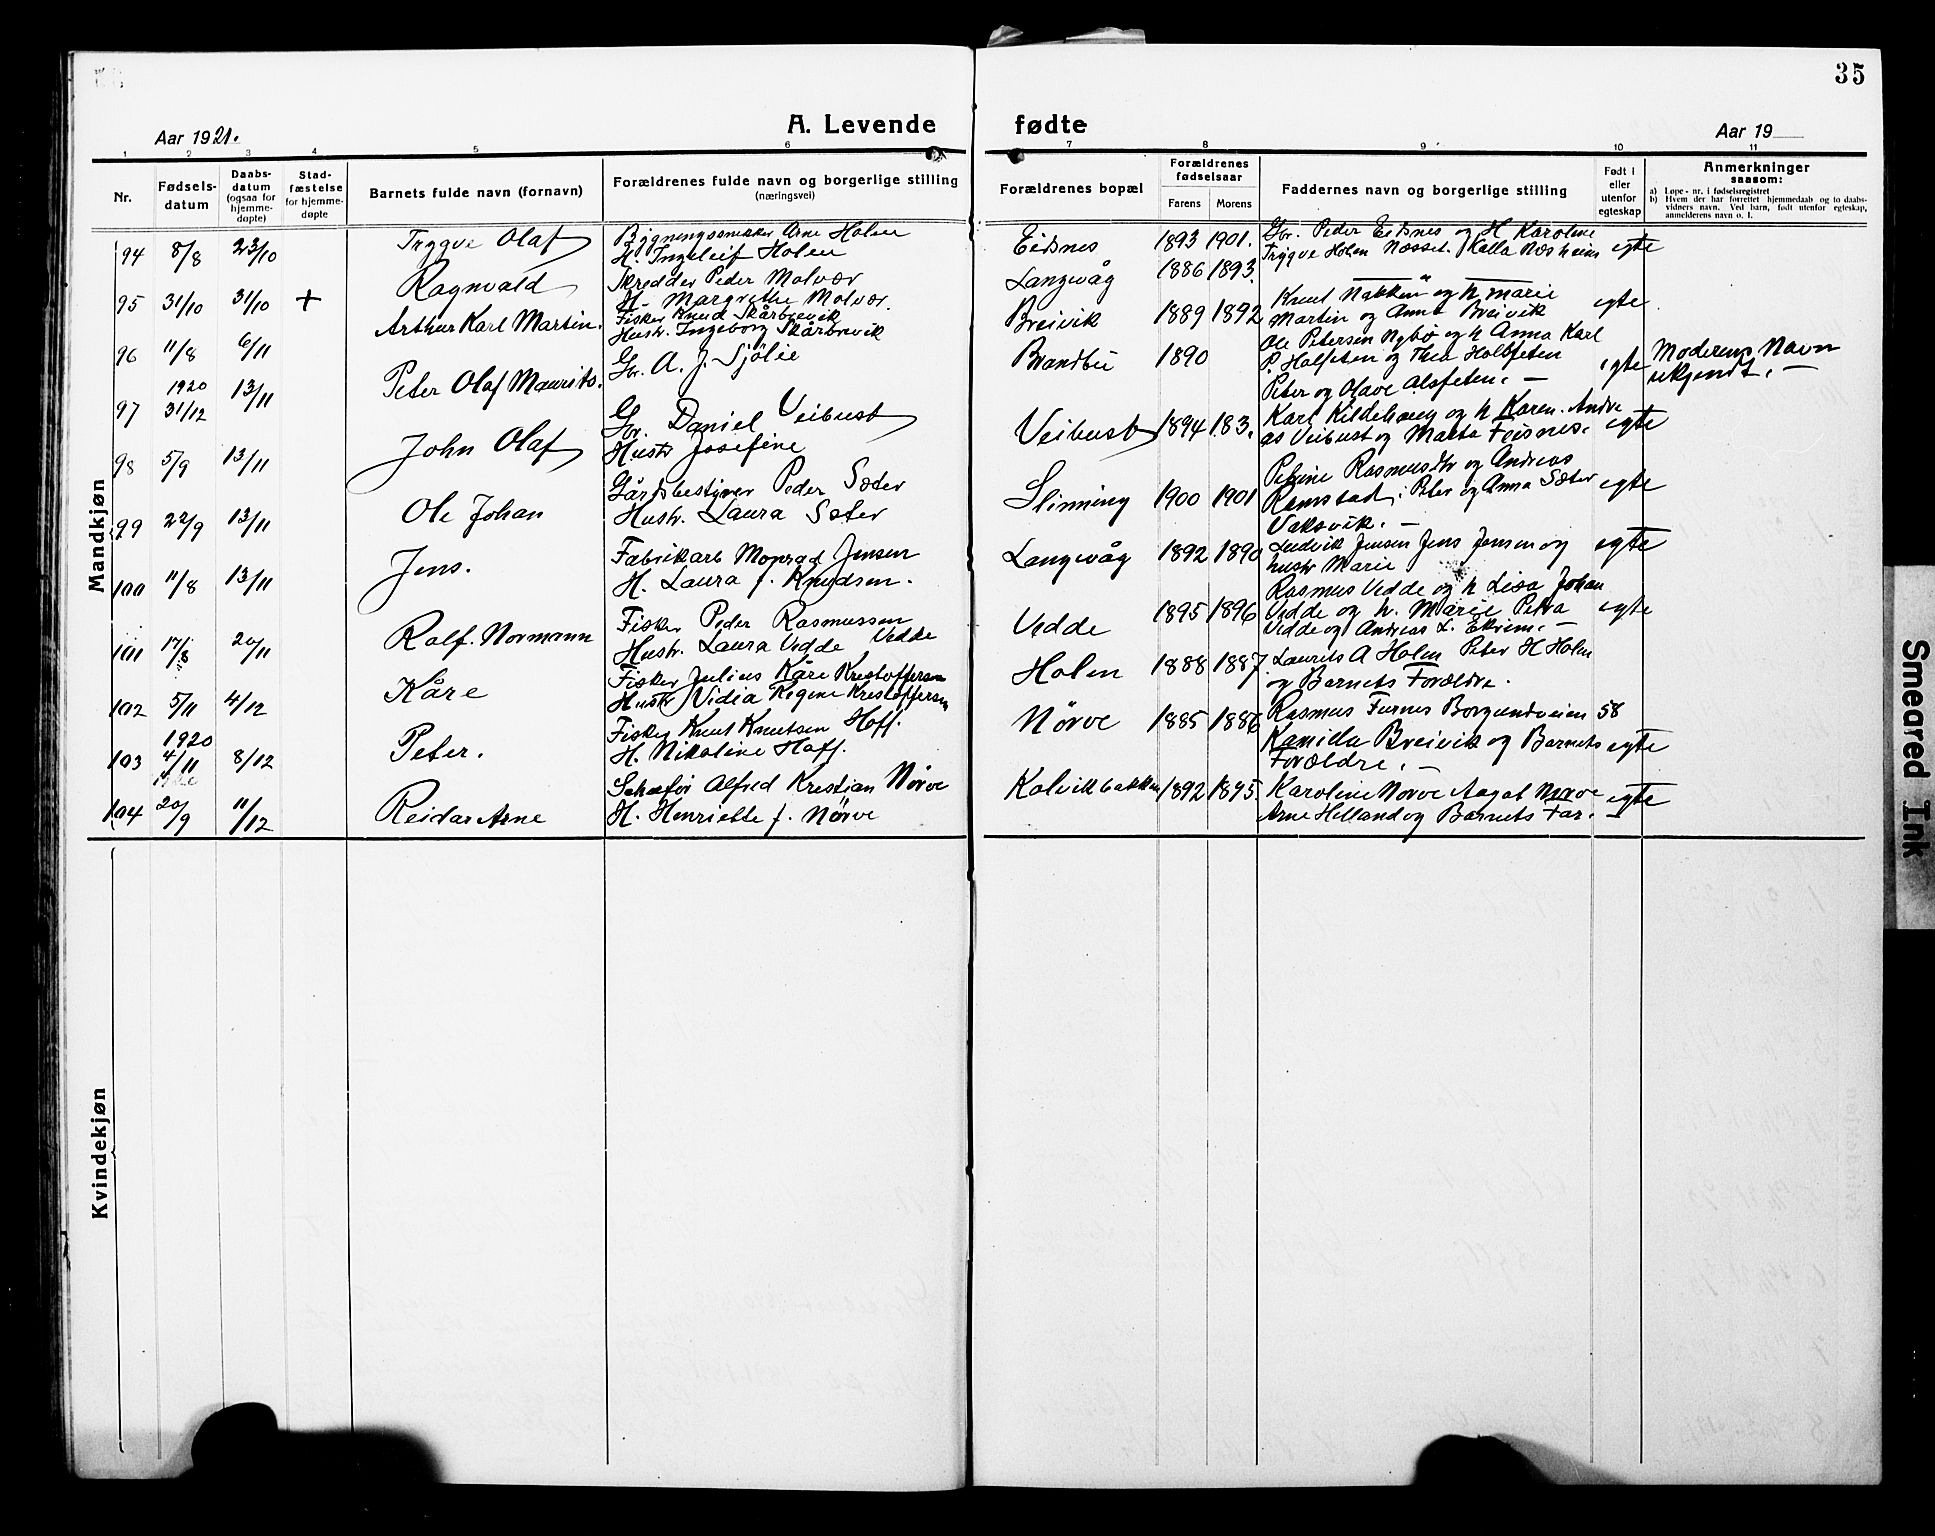 35
A. Levende fødte
Aar 1921.
Aar 19
1 2 3 4 5 6 7 8 9 10 11
Nr.
Fødsels-
datum
Daabs-
datum
(ogsaa for
hjemme-
døpte)
Stad-
fæstelse
for hjemme-
døpte
Barnets fulde navn (fornavn)
Forældrenes fulde navn og borgerlige stilling
(næringsvei)
Forældrenes bopæl
Forældrenes
fødselsaar
Farens Morens
Faddernes navn og borgerlige stilling
Født i
eller
utenfor
egteskap
Anmerkninger
saasom:
a) Løpe-nr. i fødselsregistret
b) Hvem der har forrettet hjemmedaab og to daabs-
vidners navn. Ved barn, født utenfor egteskap,
anmelderens navn o. l.
Mandkjøn
94 8/8 23/10 Trygve Olaf
Bygningssnekker Arne Holen
H. Ingeleif Holen
Eidsnes 1893 1901.
Gbr. Peder Eidsnes og H Karoline
Trygve Holen Næsset. Kalla Næsheim
egte
95 31/10 31/10 + Ragnvald
Skredder Peder Molvær
H. Margrethe Molvær.
Langevåg 1886 1893.
egte
96 11/8 6/11 Arthur Karl Martin.
Fisker Knud Skårbrevik
Hustr. Ingeborg Skårbrevik
Breivik 1889 1892
Knut Nakken og h marie
Martin og Anna Breivik
97 1920
31/12 13/11 Peter Olaf Maurits.
Gbr. A. J. Sjölie
Brandbu 1890
Ole Petersen Nybø og h Anna Karl
P. Holfeten og Thea Holbfeten
Peter og Olave Alsfeten. —
egte
Moderens Navn
ukjendt. —
98 5/9 13/11 John Olaf
Gbr. Daniel Veibust
Hustr Josefine
Veibust 1894 183.
Karl Kildehaug og h Karen. Andre
as Veibust og Marta Eidsnes.
egte
99 22/9 13/11 Ole Johan
Gårdsbestyrer Peder Sæter
Hustr. Laura Sæter
Slinning 1900 1901
Petrine Rasmusdtr og Andreas
Ramstad, Peter og Anna Sæter
Vaksvik. —
egte
100 11/8 13/11 Jens.
Fabrikarb Monrad Jensen
H. Laura f. Knudsen.
Langevåg 1892 1890
Ludvik Jensen Jens Jensen og
hustr Marie
egte
101 17/8 20/11 Ralf. Normann
Fisker Peder Rasmussen
Hustr. Laura Vedde Vedde
Vedde 1895 1896
Rasmus Vedde og h Lisa Johan
Vedde og h. Marie Petra
Vedde og Andreas L. Ekrem. —
egte
102 5/11 4/12 Kåre
Fisker Julius Kåre Krestoffersen
Hustr Vidia Regine Krestoffersen
Holen 1888 1887
Laurits A Holen Peter H Holen
og Barnets Forældre.
103 1920
4/11 8/12 Peter.
Fisker Knut Knutsen Hoff.
H. Nikoline Hoff.
Nörve 1885 1886
Rasmus Furnes Borgundveien 58
Kamilla Breivik og Barnets
Forældre. —
egte
104 20/9 11/12 Reidar Arne
Schæfør Alfred Kristian Nörve
H. Henriette f. Nörve
Kolvikbakken 1892 1895.
Karoline Nörve Aagot Nörve
Arne Helland og Barnets Far.
egte
Kvindekjøn
Smeared Ink